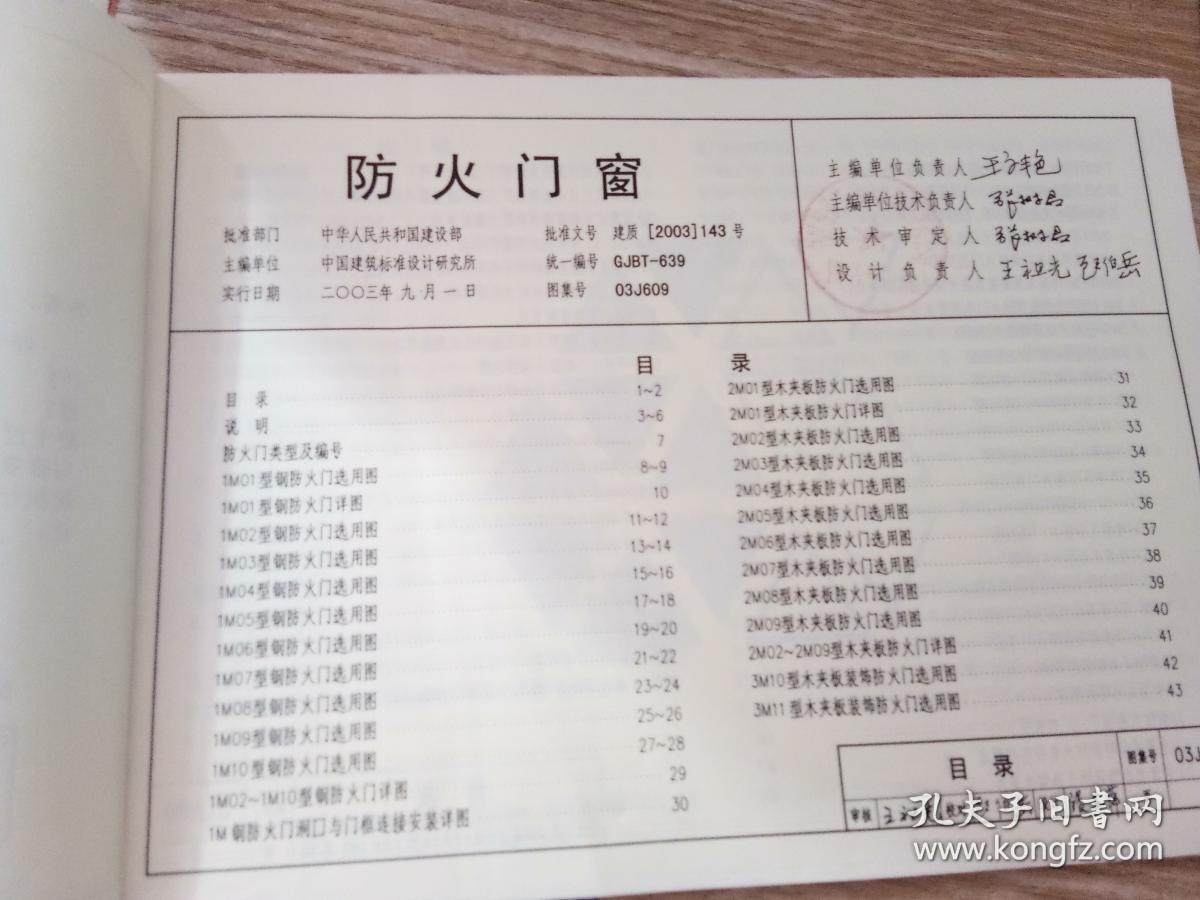 防火门窗
批准部门 中华人民共和国建设部 批准文号 建质[2003]143号
主编单位 中国建筑标准设计研究所 统一编号 GJBT-639
实行日期 二〇〇三年九月一日 图集号 03J609
主编单位负责人
主编单位技术负责人
技术审定人
设计负责人 王祖光
目录
目录 1~2
说明 3~6
防火门类型及编号 7
1M01型钢防火门选用图 8~9
1M01型钢防火门详图 10
1M02型钢防火门选用图 11~12
1M03型钢防火门选用图 13~14
1M04型钢防火门选用图 15~16
1M05型钢防火门选用图 17~18
1M06型钢防火门选用图 19~20
1M07型钢防火门选用图 21~22
1M08型钢防火门选用图 23~24
1M09型钢防火门选用图 25~26
1M10型钢防火门选用图 27~28
1M02~1M10型钢防火门详图 29
1M钢防火门洞口与门框连接安装详图 30
2M01型木夹板防火门选用图 31
2M01型木夹板防火门详图 32
2M02型木夹板防火门选用图 33
2M03型木夹板防火门选用图 34
2M04型木夹板防火门选用图 35
2M05型木夹板防火门选用图 36
2M06型木夹板防火门选用图 37
2M07型木夹板防火门选用图 38
2M08型木夹板防火门选用图 39
2M09型木夹板防火门选用图 40
2M02~2M09型木夹板防火门详图 41
3M10型木夹板装饰防火门选用图 42
3M11型木夹板装饰防火门选用图 43
目录 图集号 03J
审核
孔夫子旧书网
www.kongfz.com